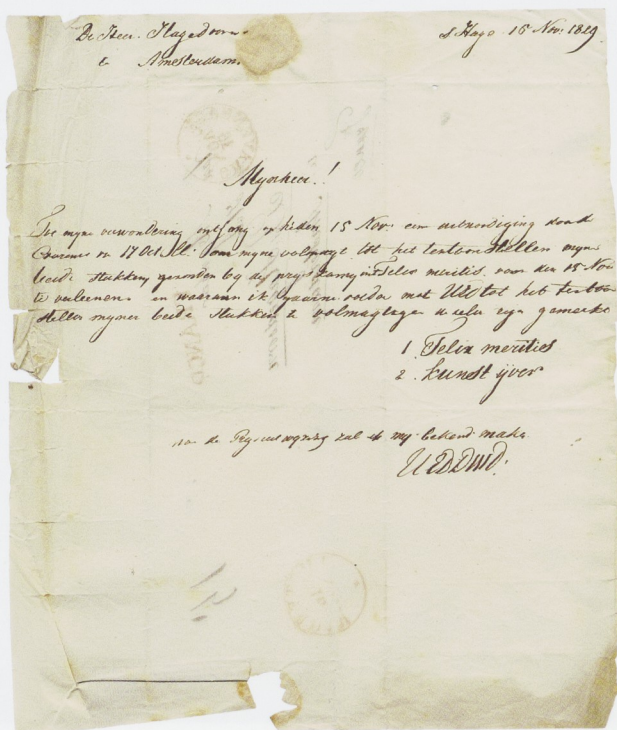 De Heer Hagedoorn
s Hage 16 Nov: 1829
te Amsterdam
Mynheer!
Tot myne verwondering ontfang op heden 15 Nov: een uitnodiging door de
Courant van 17 Oct ll: om myne volmagt tot het tentoon Stellen myne
beide Stukken, gezonden by de prys Felix meritis voor den 15 Nov
te verleenen en waaraan ik gaarne met tot het tentoon
Stellen myner beide Stukken te volmagtigen zyn gemerkt
1. Felix meritis
2. kunst ijver
na de zal ik my bekend make
UEDDWD.